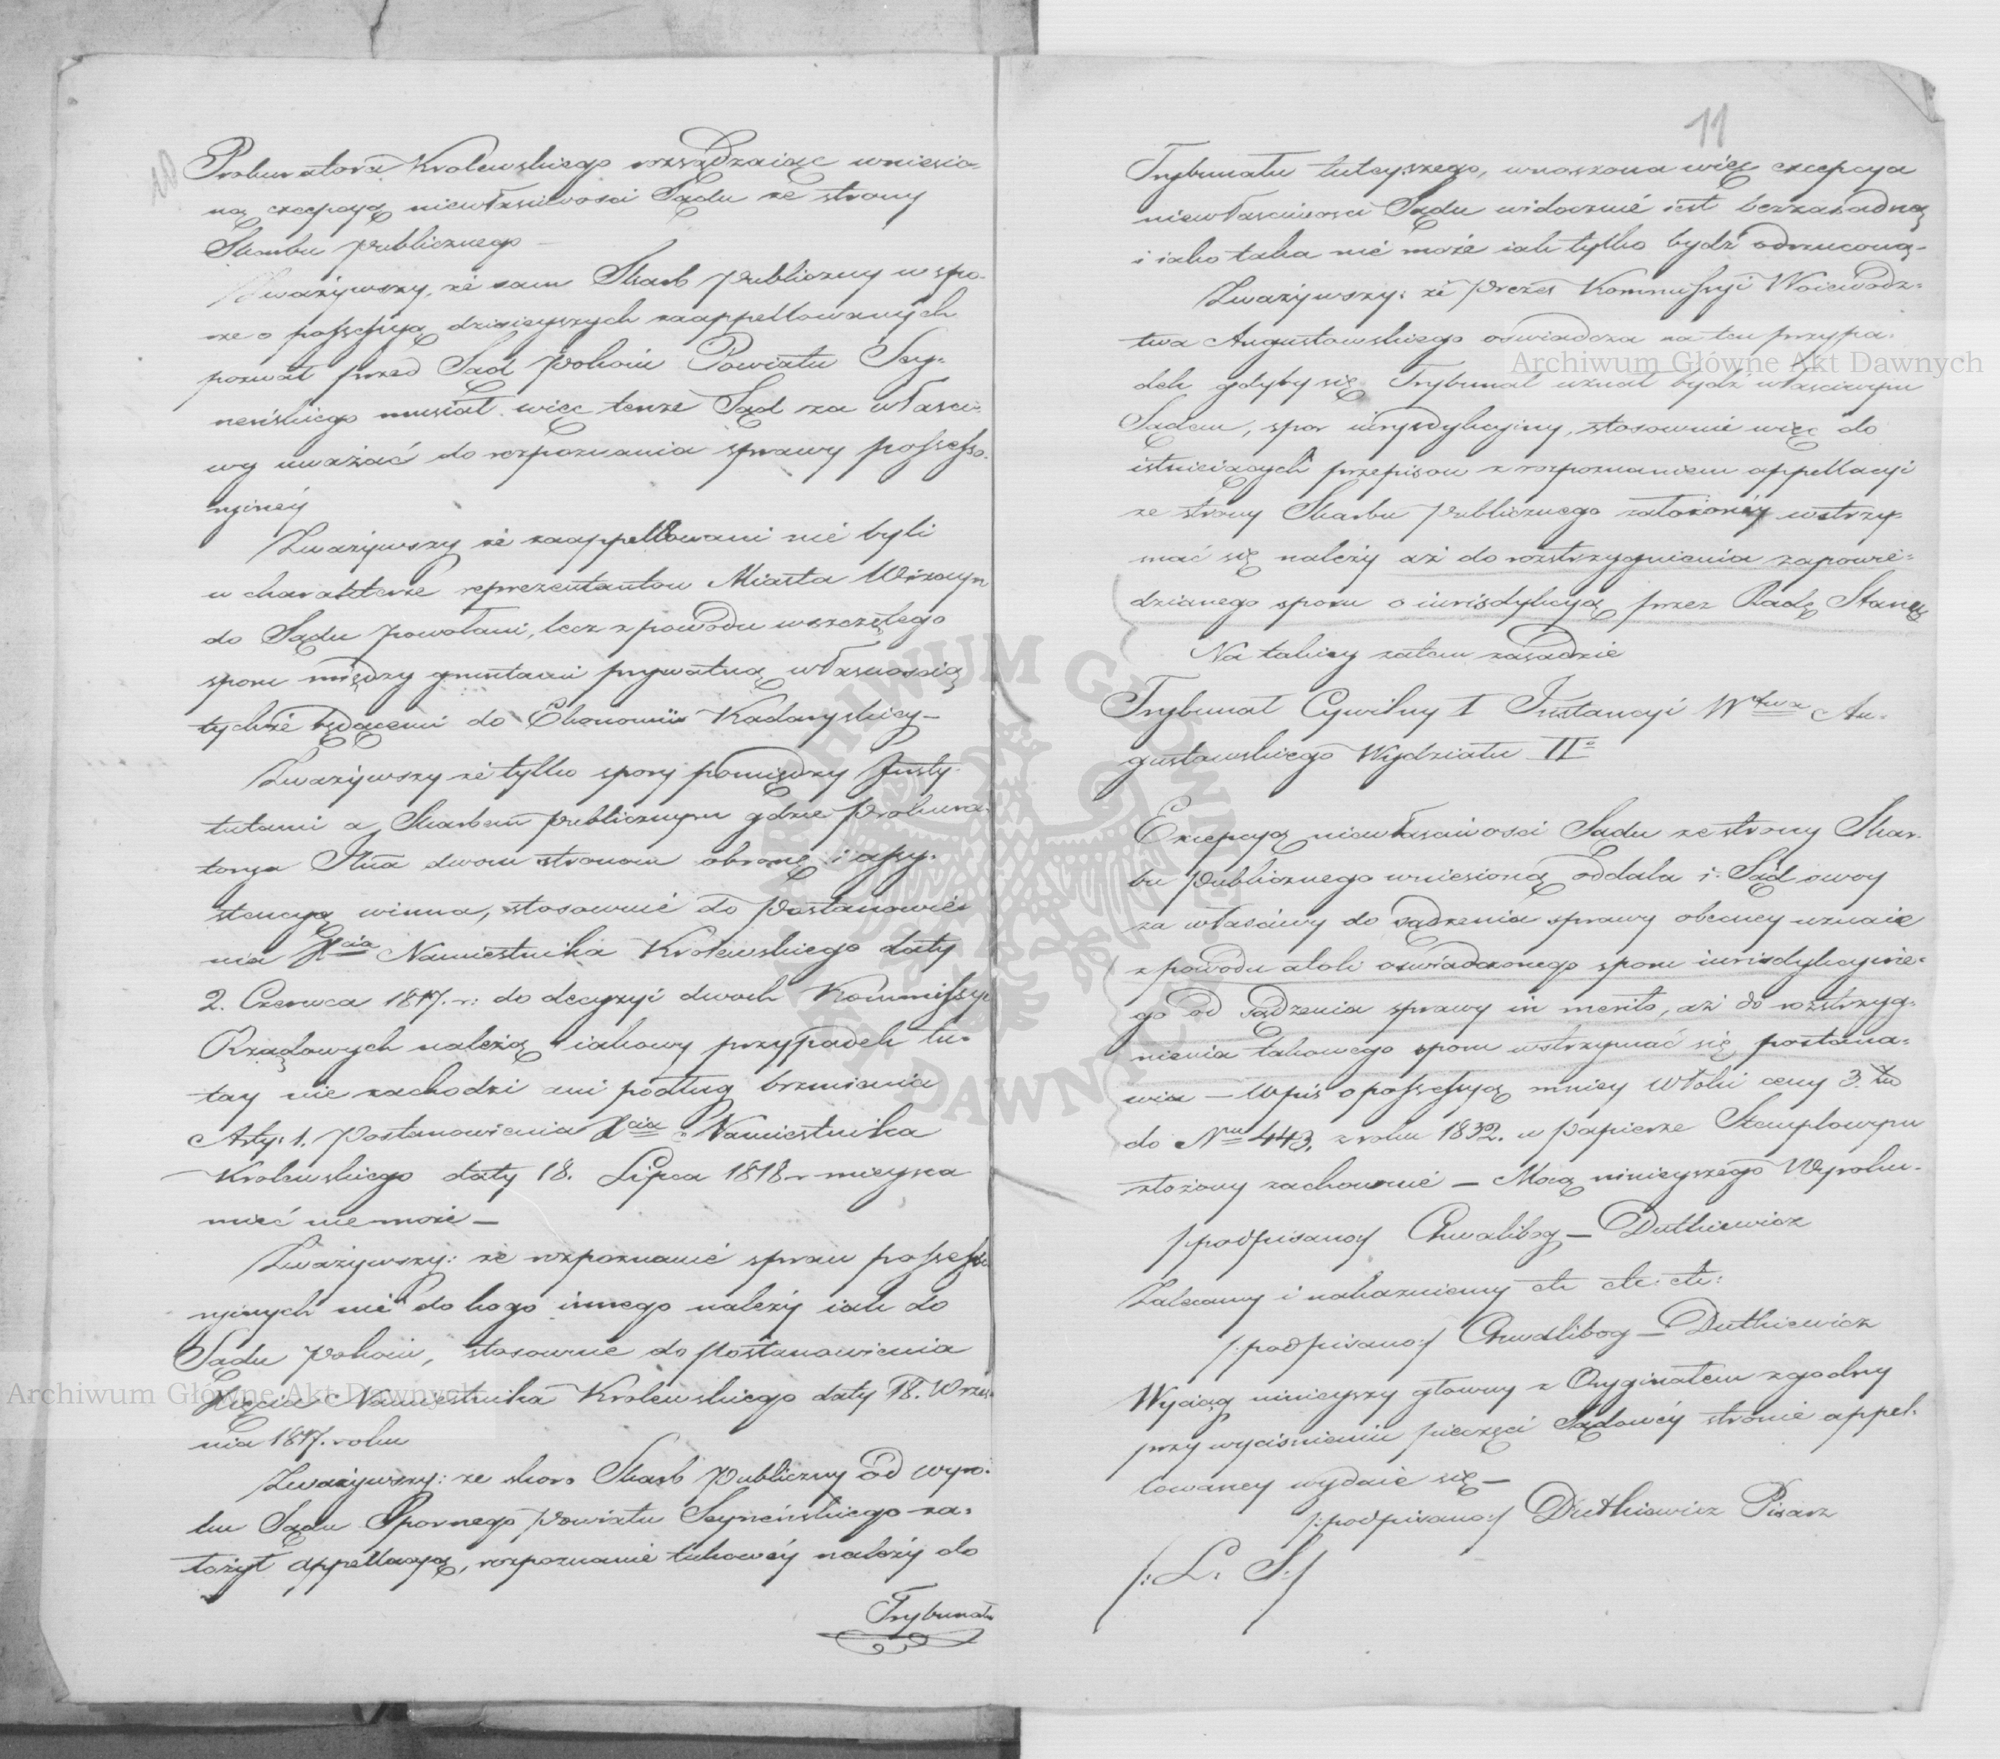 10
Prokuratora Krolewskiego rozsądzaiąc wniesio-
ną excepcyą niewłasciwosci Sądu ze strony
Skarbu publicznego –
Zważywszy, że sam Skarb publiczny w spo-
rze o possessyą dzisieyszych zaappellowanych
pozwał przed Sąd Pokoiu Powiatu Sey-
neńskiego musiał więc tenże Sąd za własci-
wy uważać do rozpoznania sprawy possesso-
ryinéy
Zważywszy że zaappellowani nié byli
w charakterze reprezentantow Miasta Wizayn
do Sądu powołani, lecz z powodu wszczętego
sporu między gruntami prywatną własnoscią
tychże będącemi do Ekonomii Kadaryskiey –
Zważywszy że tylko spory pomiędzy Insty-
tutami a Skarbem publicznym gdzie Prokura-
torya Słna dwom stronom obronę i assy-
stencyą winna, stosownié do Postanowie-
nia Xcia Namiestnika Krolewskiego daty
2. Czerwca 1817. r: do decyzyi dwoch Kommissyi
Rządowych należą iakowy przypadek tu-
tay nie zachodzi ani podług brzmienia
Arty: 1. Postanowienia Xcia Namiestnika
Krolewskiego daty 18. Lipca 1818 r mieysca
miéć niemoże –
Zważywszy: że rozpoznanié spraw possesso-
ryinych nié do kogo innego należy iak do
Sądu Pokoiu, stosownie do Postanowienia
Xięcia Namiestnika Krolewskiego daty 18. Wrześ-
nia 1817. roku
Zważywszy: że skoro Skarb Publiczny od wyro-
ku Sądu Spornego Powiatu Seyneńskiego za-
łożył appellacyą, rozpoznanié takowéy należy do
Trybunału
11
Trybunału tuteyszego, wnoszona więc excepcya
niewłasciwosci Sądu widocznié iest bezzasadną
i iako taka nié może iak tylko bydź odrzuconą –
Zważywszy: że Prezes Kommissyi Woiewodz-
twa Augustowskiego oswiadcza na ten przypa-
dek gdyby się Trybunał uznał bydź własciwym
Sądem, spor iurysdykcyiny, stosownié więc do
istnieiących przepisow z rozpoznaniem appellacyi
ze strony Skarbu Publicznego założonéy wstrzy-
mać się należy aż do rozstrzygnienia zapowie-
dzianego sporu o iurisdykcyą przez Radę Stanu
Na takiey zatem zasadzie
Trybunał Cywilny I Instancyi Wtwa Au-
gustowskiego Wydziału IIo
Excepcyą niewłasciwosci Sądu ze strony Skar-
bu Publicznego wniesioną oddala i Sąd swoy
za własciwy do sądzenia sprawy obecney uznaie
z powodu atoli oswiadczonego sporu iurisdykcyine-
go od sądzenia sprawy in merito, aż do rozstrzyg-
nienia takowego sporu wstrzymać się postana-
wia – Wpis o possessyą mniey Włoki ceny 3. Złł
do Nru 443. z roku 1832. w papierze Stemplowym
złożony zachownié – Mocą ninieyszego Wyroku –
/:podpisano:/ Chwalibog – Dutkiewicz
Zalecamy i nakazuiemy etc etc: etc:
/:podpisano:/ Chwalibog – Dutkiewicz
Wyciąg ninieyszy głowny z Oryginałem zgodny
przy wycisnieniu pieczęci Sądowéy stronié appel-
lowaney wydaié się –
/:podpisano:/ Dutkiewicz Pisarz
/: L: S:/
Archiwum Główne Akt Dawnych
Archiwum Główne Akt Dawnych
ARCHIWUM GŁÓWNE AKT DAWNYCH